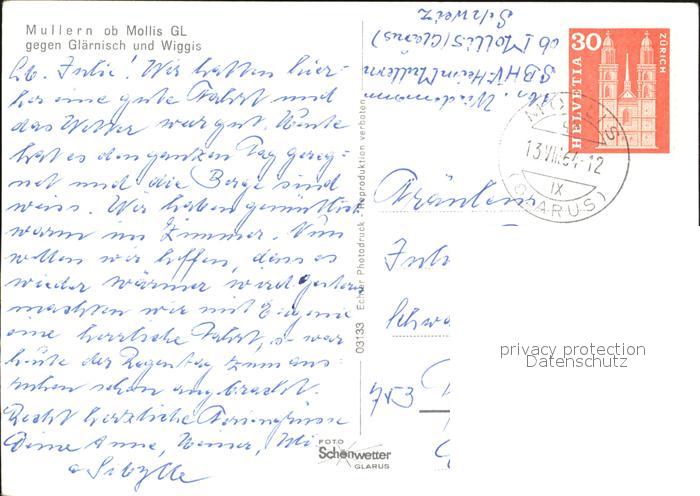 Mullern ob Mollis GL
gegen Glärnisch und Wiggis
Lb. Julie! Wir hatten hier-
her eine gute Fahrt und
das Wetter war gut. Heute
hat es den ganzen Tag gereg-
net und die Berge sind
weiss. Wir haben gemütlich
warm im Zimmer. Nun
wollen wir hoffen, dass es
wieder wärmer wird. Gestern
machten wir mit Eugenie
eine herrliche Fahrt, so war
heute der Regentag zum aus-
ruhen schon angebracht.
Recht herzliche Feriengrüsse
Deine Anne, Werner,
& Sibylle
Echter Photodruck - Reproduktion verboten
03133
FOTO
Schönwetter
GLARUS
SBHV-Heim Mullern
ob Mollis (Glarus)
Schweiz
30
HELVETIA
ZÜRICH
MOLLIS
13.VIII.64-12
IX
(GLARUS)
Fräulein
753
privacy protection
Datenschutz